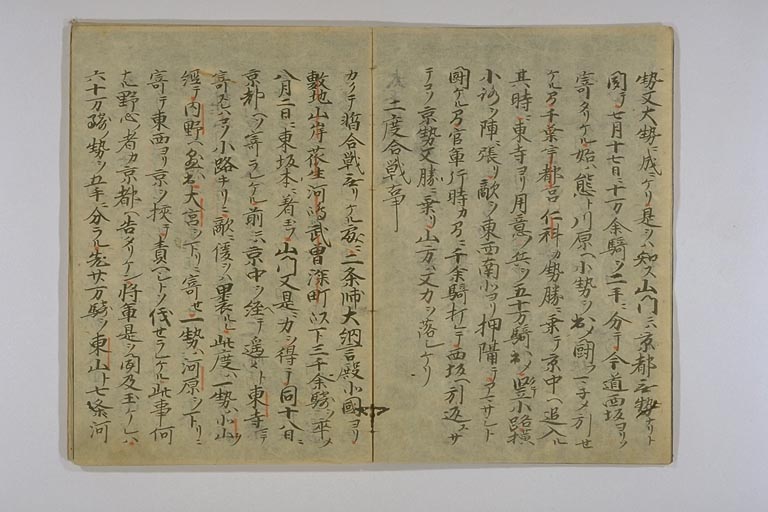 勢又大勢ニ成ニケリ是ヲハ知ス山門ニハ京都無勢ナリト
聞テ七月十七日十万余騎ヲ二手ニ分テ今道西坂ヨリソ
寄タリケル始ハ態ト川原ヘ小勢ヲ出ノ闘フ一予メ引セ
ケル間千葉宇都宮仁科カ勢勝ニ乗テ京中ヘ追入ル
其時ニ東寺ヨリ用意ノ兵ヲ五十万騎出ノ竪小路横
小路ニ陣ヲ張リ敵ヲ東西南北ヨリ押隔テヽアマサシト
闘ケル間官軍行時カ間ニ千余騎打レテ西坂ヘ引返ス サ
テコソ京勢又勝ニ乗リ山方ハ又力ヲ落シケリ
二度合戦事
カリテ暫合戦無リケル處ニ二条師大納言殿小國ヨリ
敷地山岸瓜生河嶋武曽深町以下三千余騎ヲ率メ
八月二日ニ東坂本ニ着玉フ山門又是ニ力ヲ得テ同十八日ニ
京都ヘソ寄ラレケル前ニハ京中ヲ経テ遥々ト東寺マテ
寄レハコソ小路キリニ敵ニ後ヲハ裹レレ此度ハ一勢ハ小山ヲ
経テ内野ヘ出大宮ヲ下リニ寄セ一勢ハ河原ヲ下リニ
寄テ東西ヨリ京ヲ挟テ責ヘシトソ伐セラレケル此事何
ナル野心者カ京都ヘ告タリケン将軍是ヲ聞及玉ケレハ
六十万騎ノ勢ヲ五手ニ分ラル先廿万騎ヲ東山ト七条河